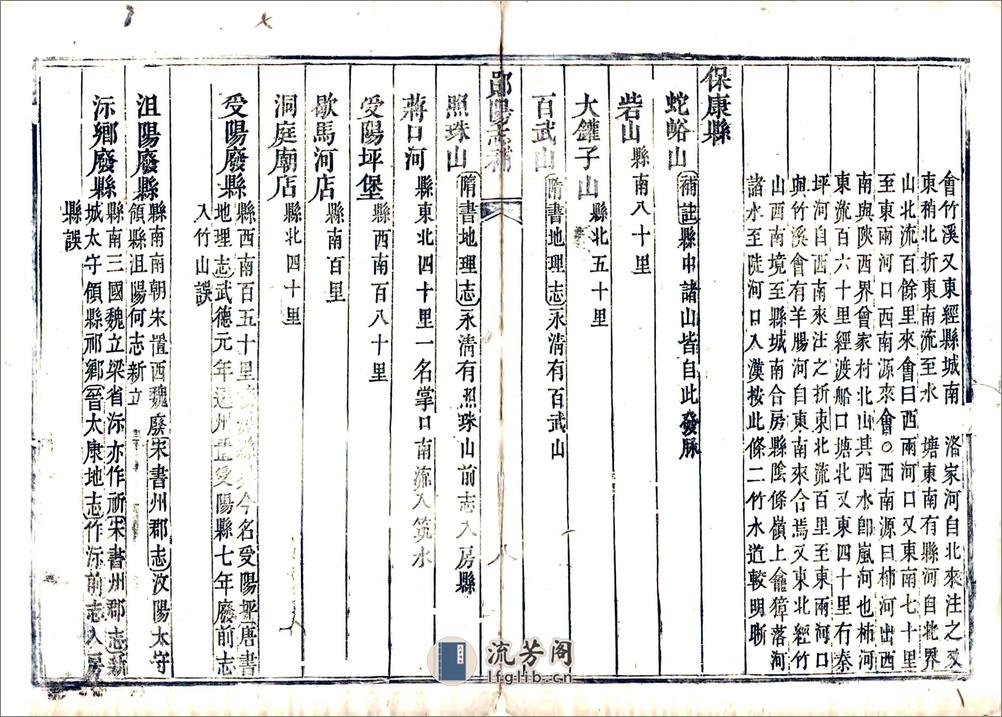 會竹溪又東經縣城南　洛家河自北來注之又
東稍北折東南流至水　塘東南有縣河自北界
山北流百餘里來會曰西兩河口又東南七十里
至東兩河口西南源來會○西南源曰柿河出西
南與陜西界曾家村北山其西水卽嵐河也柿河
東流百六十里經渡船口塘北又東四十里有秦
坪河自西南來注之折東北流百里至東兩河口
與竹溪會有羊腸河自東南來合焉又東北經竹
山西南境至縣城南合房縣陰條嶺上龕獐落河
諸水至陡河口入漢按此條二竹水道較明晰
保康縣
蛇峪山補註縣中諸山皆自此發脉
砦山縣南八十里
大鑵子山縣北五十里
百武山隋書地理志永清有百武山
鄖陽志補
八
照珠山隋書地理志永清有照珠山前志入房縣
蔣口河縣東北四十里一名掌口南流入筑水
受陽坪堡縣西南百八十里
歇馬河店縣南百里
洞庭廟店縣北四十里
受陽廢縣縣西南百五十里今名受陽坪唐書
地理志武德元年置受陽縣七年廢前志
入竹山誤
沮陽廢縣縣南南朝宋置西魏廢宋書州郡志汶陽太守
領縣沮陽何志新立
沶鄉廢縣縣南三國魏立梁省沶亦作祈宋書州郡志新
城太守領縣祁鄉晉太康地志作沶前志入房
縣誤
流芳阁
lfglib.cn